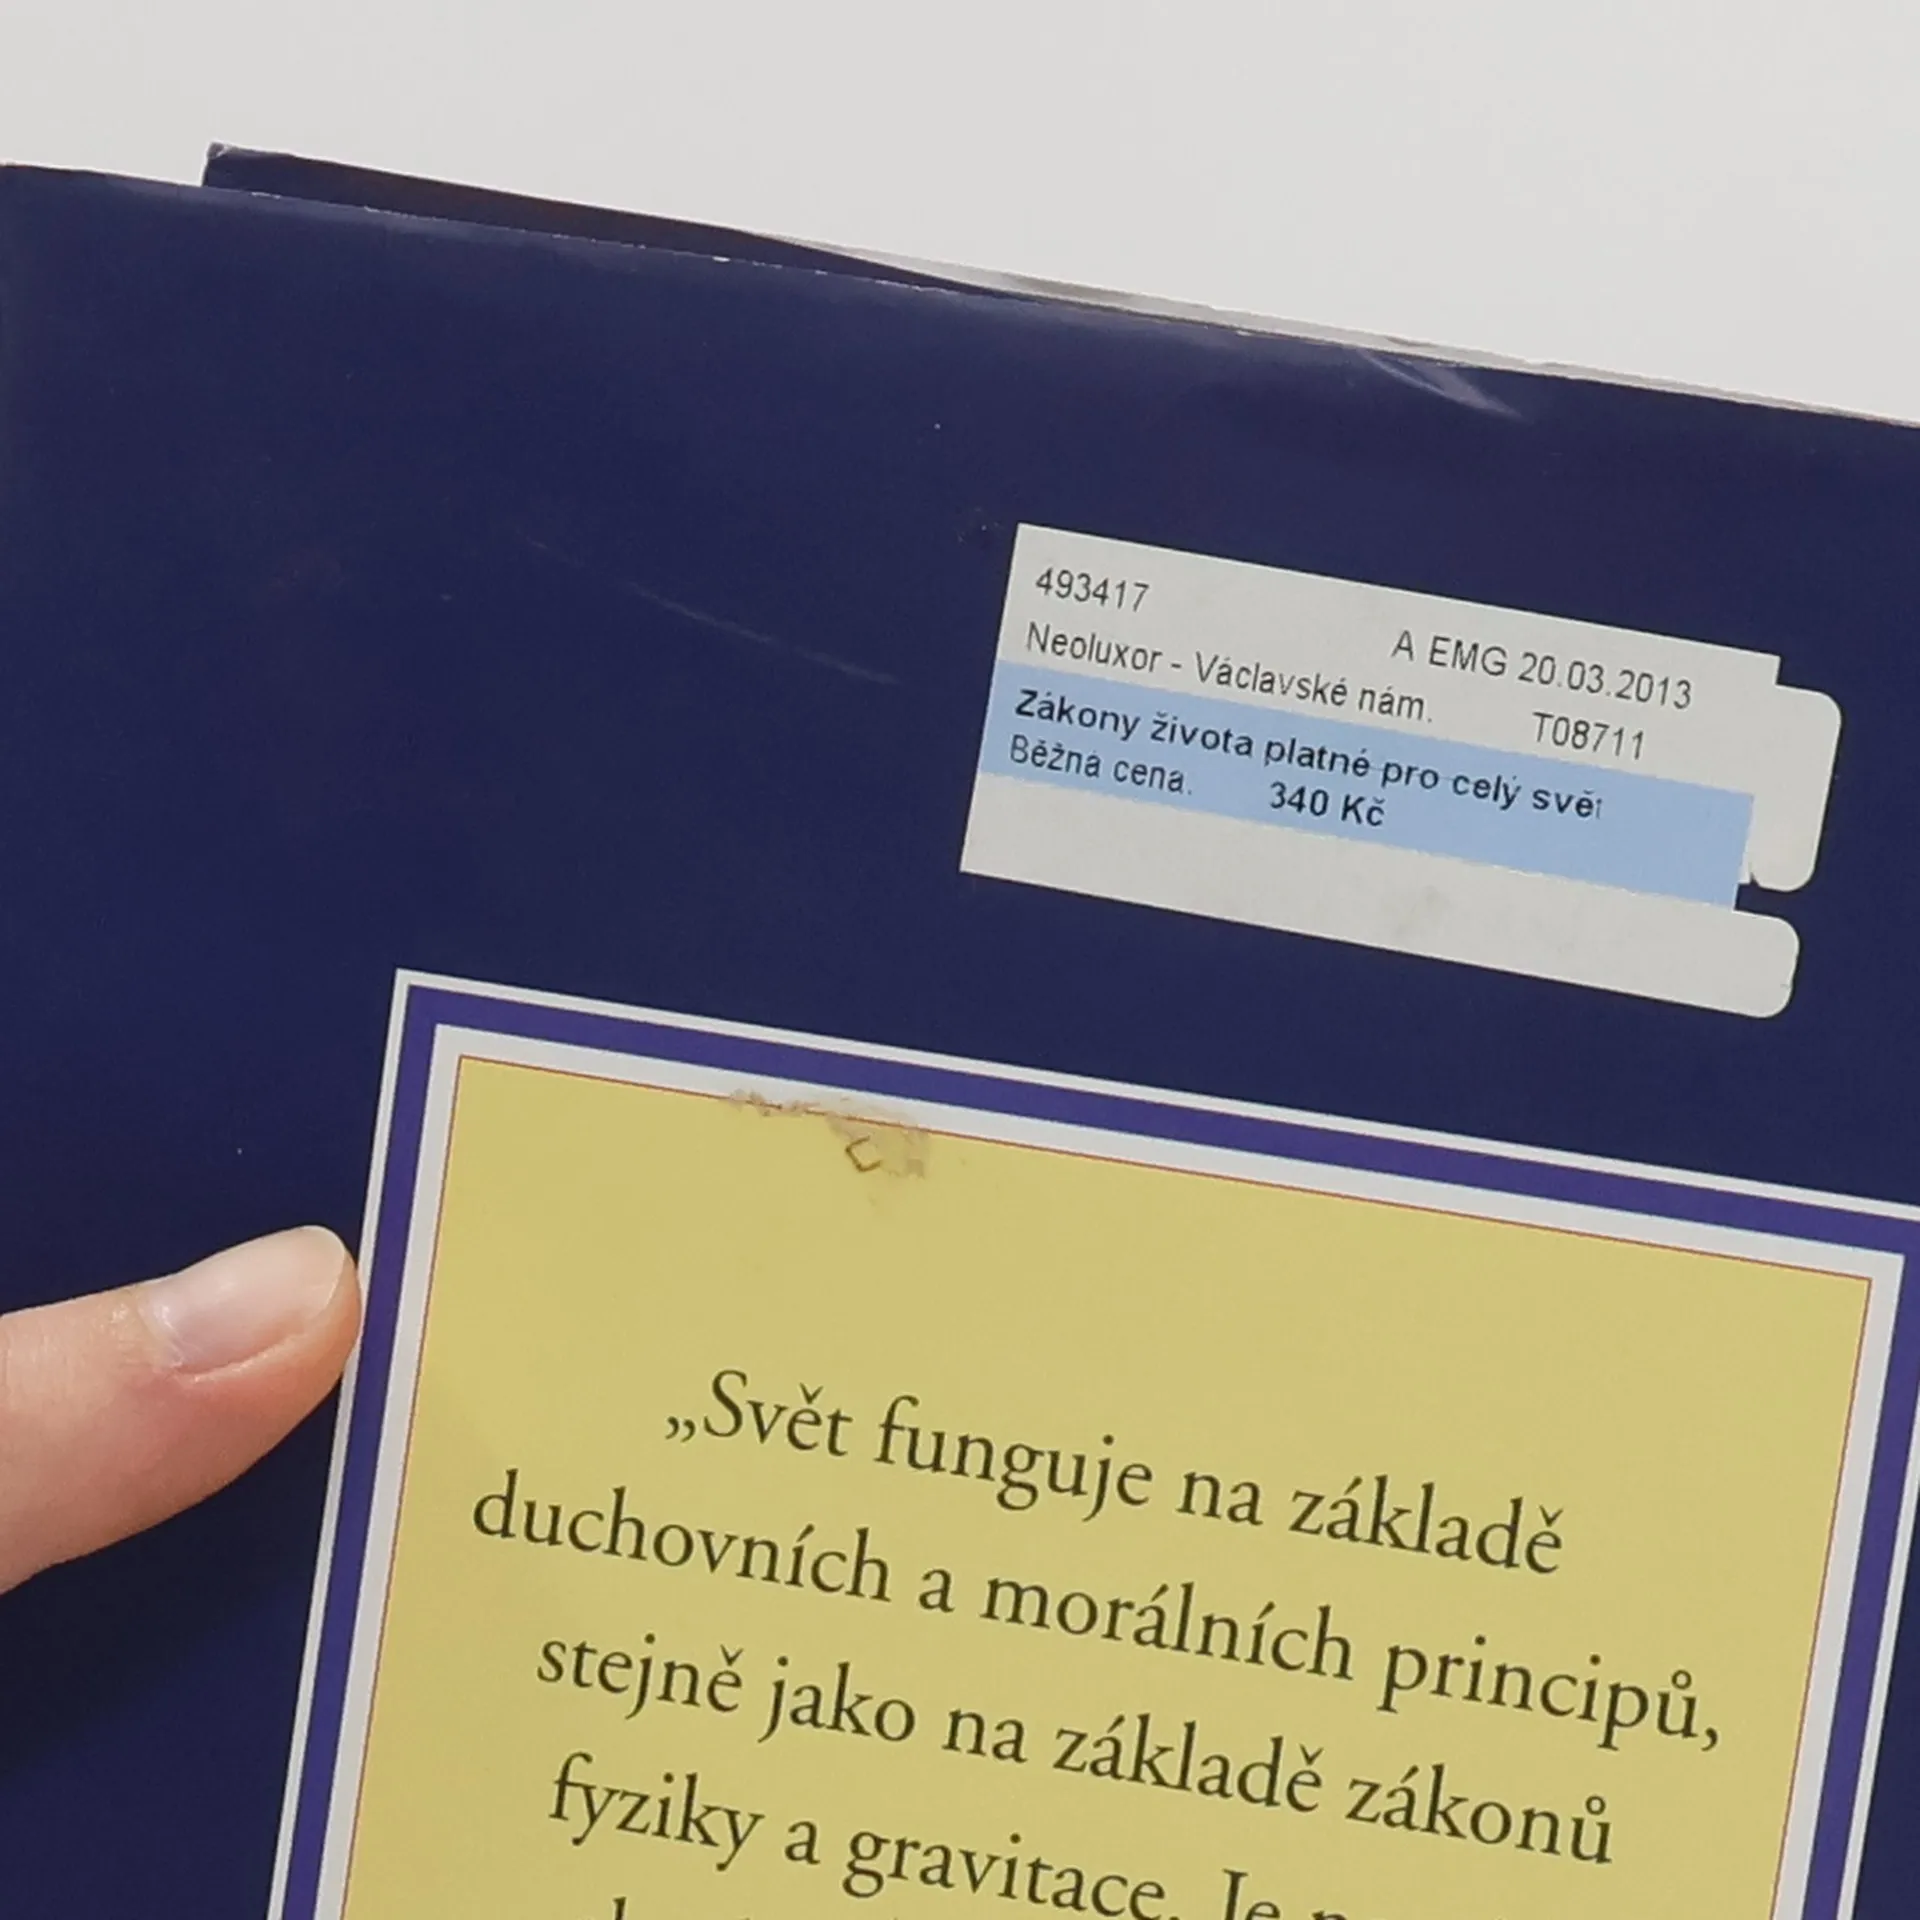 493417
A EMG 20.03.2013
Neoluxor - Václavské nám. T08711
Zákony života platné pro celý svět
Běžná cena. 340 Kč
„Svět funguje na základě
duchovních a morálních principů,
stejně jako na základě zákonů
fyziky a gravitace. Je